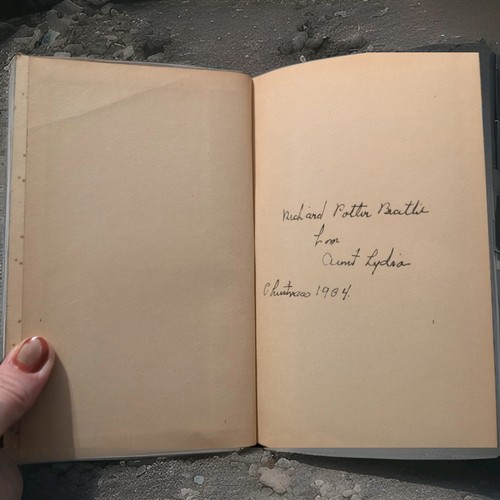 Richard Potter Beattie
from
Aunt Lydia
Christmas 1904.